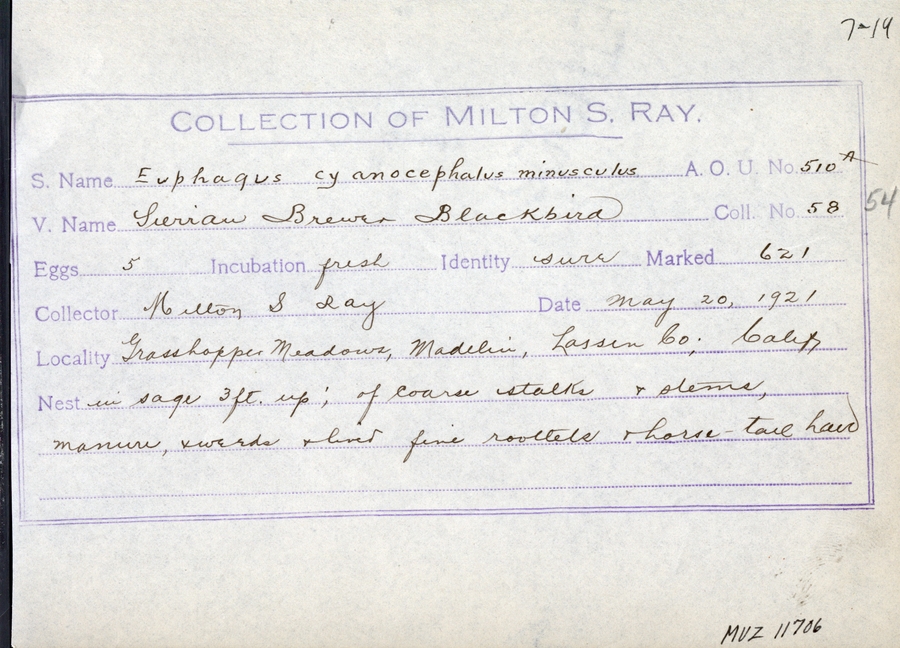 7-19
COLLECTION OF MILTON S. RAY.
S. Name Euphagus cyanocephalus minusculus A. O. U. No. 510A
V. Name Sierrian Brewer Blackbird Coll. No. 58
54
Eggs 5 Incubation fresh Identity sure Marked 621
Collector Milton S Ray Date May 20, 1921
Locality Grasshopper Meadows, Madelin, Lassen Co; Calif
Nest in sage 3ft. up; of coarse stalks & stems,
manure, & weeds & lined fine roottels & horse-tail hair
MVZ 11706